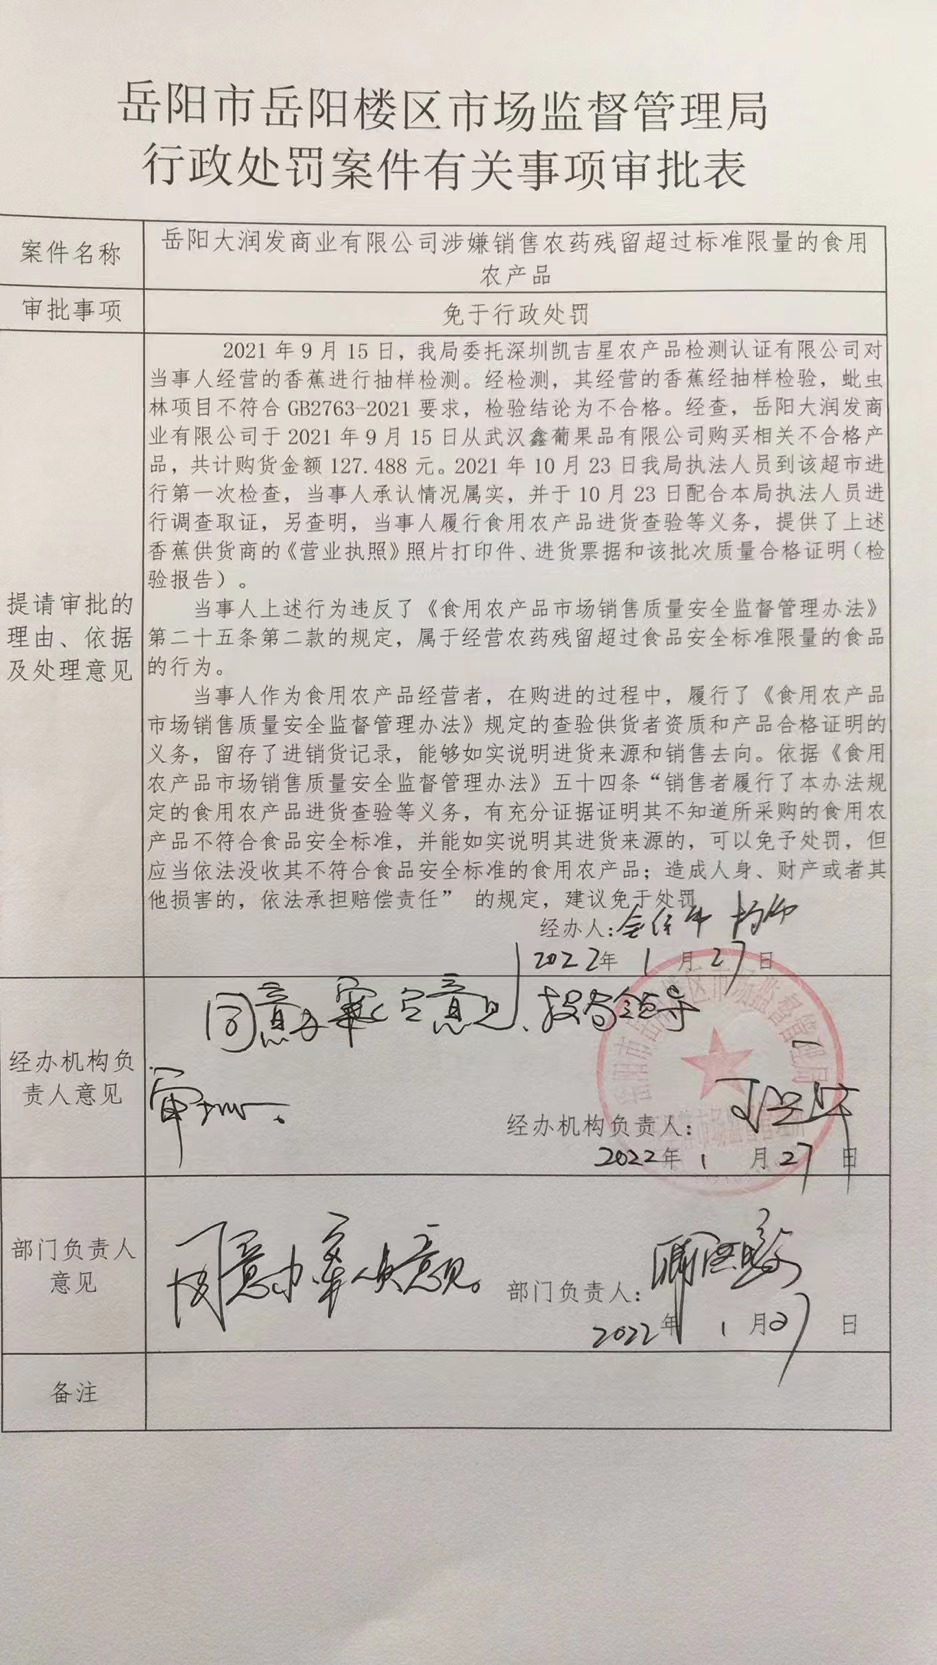 岳阳市岳阳楼区市场监督管理局
行政处罚案件有关事项审批表
案件名称
岳阳大润发商业有限公司涉嫌销售农药残留超过标准限量的食用
农产品
审批事项
免于行政处罚
提请审批的
理由、依据
及处理意见
2021年9月15日，我局委托深圳凯吉星农产品检测认证有限公司对
当事人经营的香蕉进行抽样检测。经检测，其经营的香蕉经抽样检验，吡虫
林项目不符合GB2763-2021要求，检验结论为不合格。经查，岳阳大润发商
业有限公司于2021年9月15日从武汉鑫葡果品有限公司购买相关不合格产
品，共计购货金额127.488元。2021年10月23日我局执法人员到该超市进
行第一次检查，当事人承认情况属实，并于10月23日配合本局执法人员进
行调查取证，另查明，当事人履行食用农产品进货查验等义务，提供了上述
香蕉供货商的《营业执照》照片打印件、进货票据和该批次质量合格证明（检
验报告）。
当事人上述行为违反了《食用农产品市场销售质量安全监督管理办法》
第二十五条第二款的规定，属于经营农药残留超过食品安全标准限量的食品
的行为。
当事人作为食用农产品经营者，在购进的过程中，履行了《食用农产品
市场销售质量安全监督管理办法》规定的查验供货者资质和产品合格证明的
义务，留存了进销货记录，能够如实说明进货来源和销售去向。依据《食用
农产品市场销售质量安全监督管理办法》五十四条“销售者履行了本办法规
定的食用农产品进货查验等义务，有充分证据证明其不知道所采购的食用农
产品不符合食品安全标准，并能如实说明其进货来源的，可以免予处罚，但
应当依法没收其不符合食品安全标准的食用农产品；造成人身、财产或者其
他损害的，依法承担赔偿责任” 的规定，建议免于处罚
经办人：
2022年1月27日
经办机构负
责人意见
同意办案人意见，报局领导
审批。
经办机构负责人：
2022年1月27日
部门负责人
意见
同意办案人员意见。
部门负责人：
2022年1月27日
备注